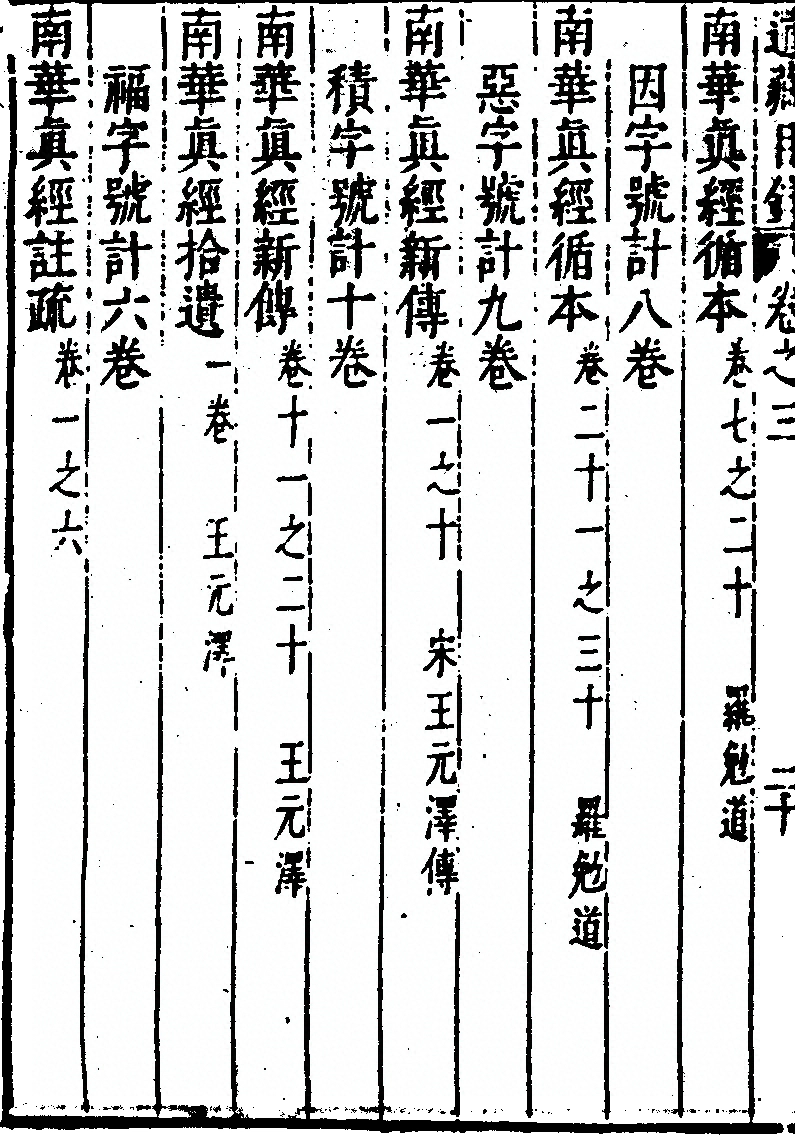 道藏目錄 卷之三 二十
南華眞經循本 卷七之二十 羅勉道
因字號計八卷
南華眞經循本 卷二十一之三十 羅勉道
惡字號計九卷
南華眞經新傳 卷一之十 宋王元澤傳
積字號計十卷
南華眞經新傳 卷十一之二十 王元澤
南華眞經拾遺 一卷 王元澤
福字號計六卷
南華眞經註疏 卷一之六